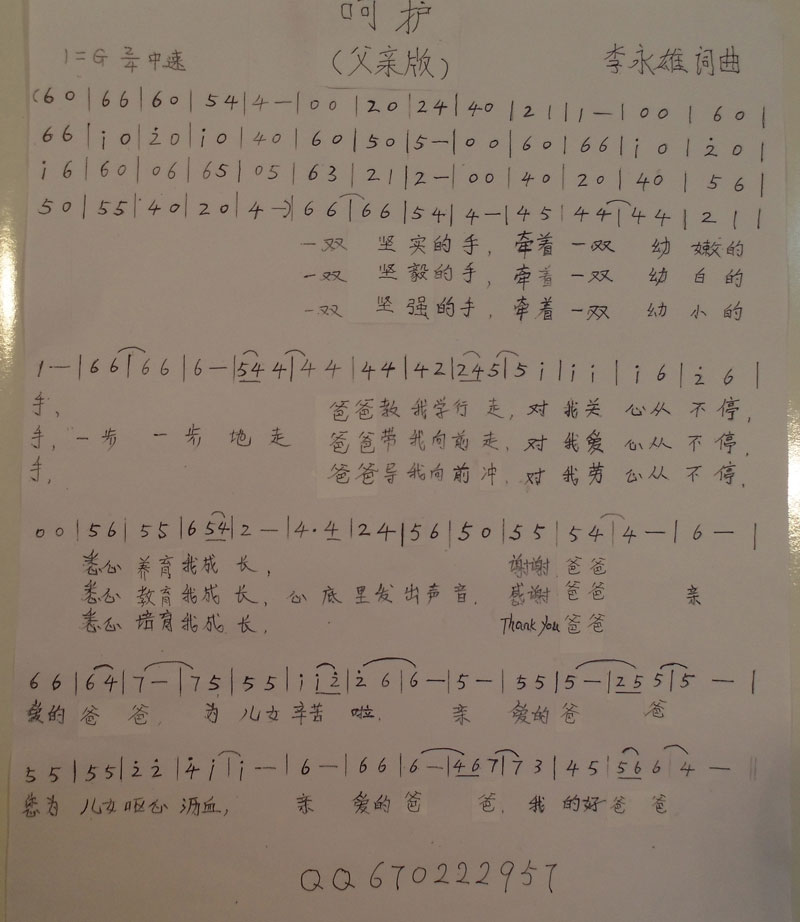 呵护
1=G 2/4 中速 (父亲版) 李永雄 词曲
(6 0 | 6 6 | 6 0 | 5 4 | 4 — | 0 0 | 2 0 | 2 4 | 4 0 | 2 1 | 1 — | 0 0 | 6 0 |
6 6 | i 0 | 2̇ 0 | i 0 | 4 0 | 6 0 | 5 0 | 5 — | 0 0 | 6 0 | 6 6 | i 0 | 2̇ 0 |
i 6 | 6 0 | 0 6 | 6 5 | 0 5 | 6 3 | 2 1 | 2 — | 0 0 | 4 0 | 2 0 | 4 0 | 5 6 |
5 0 | 5 5 | 4 0 | 2 0 | 4 —) | 6 6 | 6 6 | 5 4 | 4 — | 4 5 | 4 4 | 4 4 | 2 1 |
一双 坚实的手, 牵着一双 幼 嫩的
一双 坚毅的手, 牵着一双 幼 白的
一双 坚强的手, 牵着一双 幼 小的
1 — | 6 6 | 6 6 | 6 — | 5 4 4 | 4 4 | 4 4 | 4 2 | 2 4 5 | 5 i | i i | i 6 | 2̇ 6 |
手, 爸爸教我学行走, 对我关 心从 不停,
手, 一步 一步 地走 爸爸带我向前走, 对我爱 心从 不停,
手, 爸爸导我向前冲, 对我劳 心从 不停,
0 0 | 5 6 | 5 5 | 6 5 4 | 2 — | 4 · 4 | 2 4 | 5 6 | 5 0 | 5 5 | 5 4 | 4 — | 6 — |
悉心 养育我成长, 谢谢 爸爸
悉心 教育我成长, 心底里发出声音. 感谢 爸爸 亲
悉心 培育我成长, Thank you 爸爸
6 6 | 6 4 | 7 — | 7 5 | 5 5 | i i 2̇ | 2̇ 6 | 6 — | 5 — | 5 5 | 5 — | 2 5 5 | 5 — |
爱的 爸爸, 为 儿女辛苦 啦, 亲 爱的爸 爸
5 5 | 5 5 | 2̇ 2̇ | 4̇ i | i — | 6 — | 6 6 | 6 — | 4 6 7 | 7 3 | 4 5 | 5 6 6 | 4 — ‖
您为 儿女呕心 沥血, 亲 爱的爸 爸, 我 的好爸 爸
QQ670222957